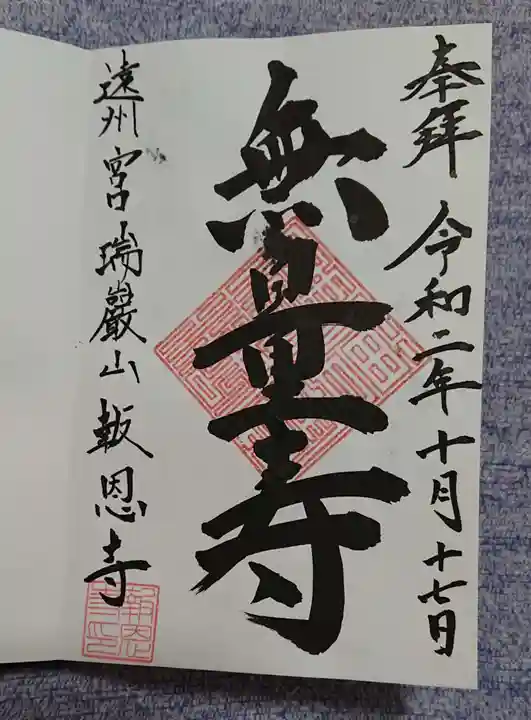 奉拜 令和二年十月十七日
無量寿
遠州宮瑞巖山報恩寺